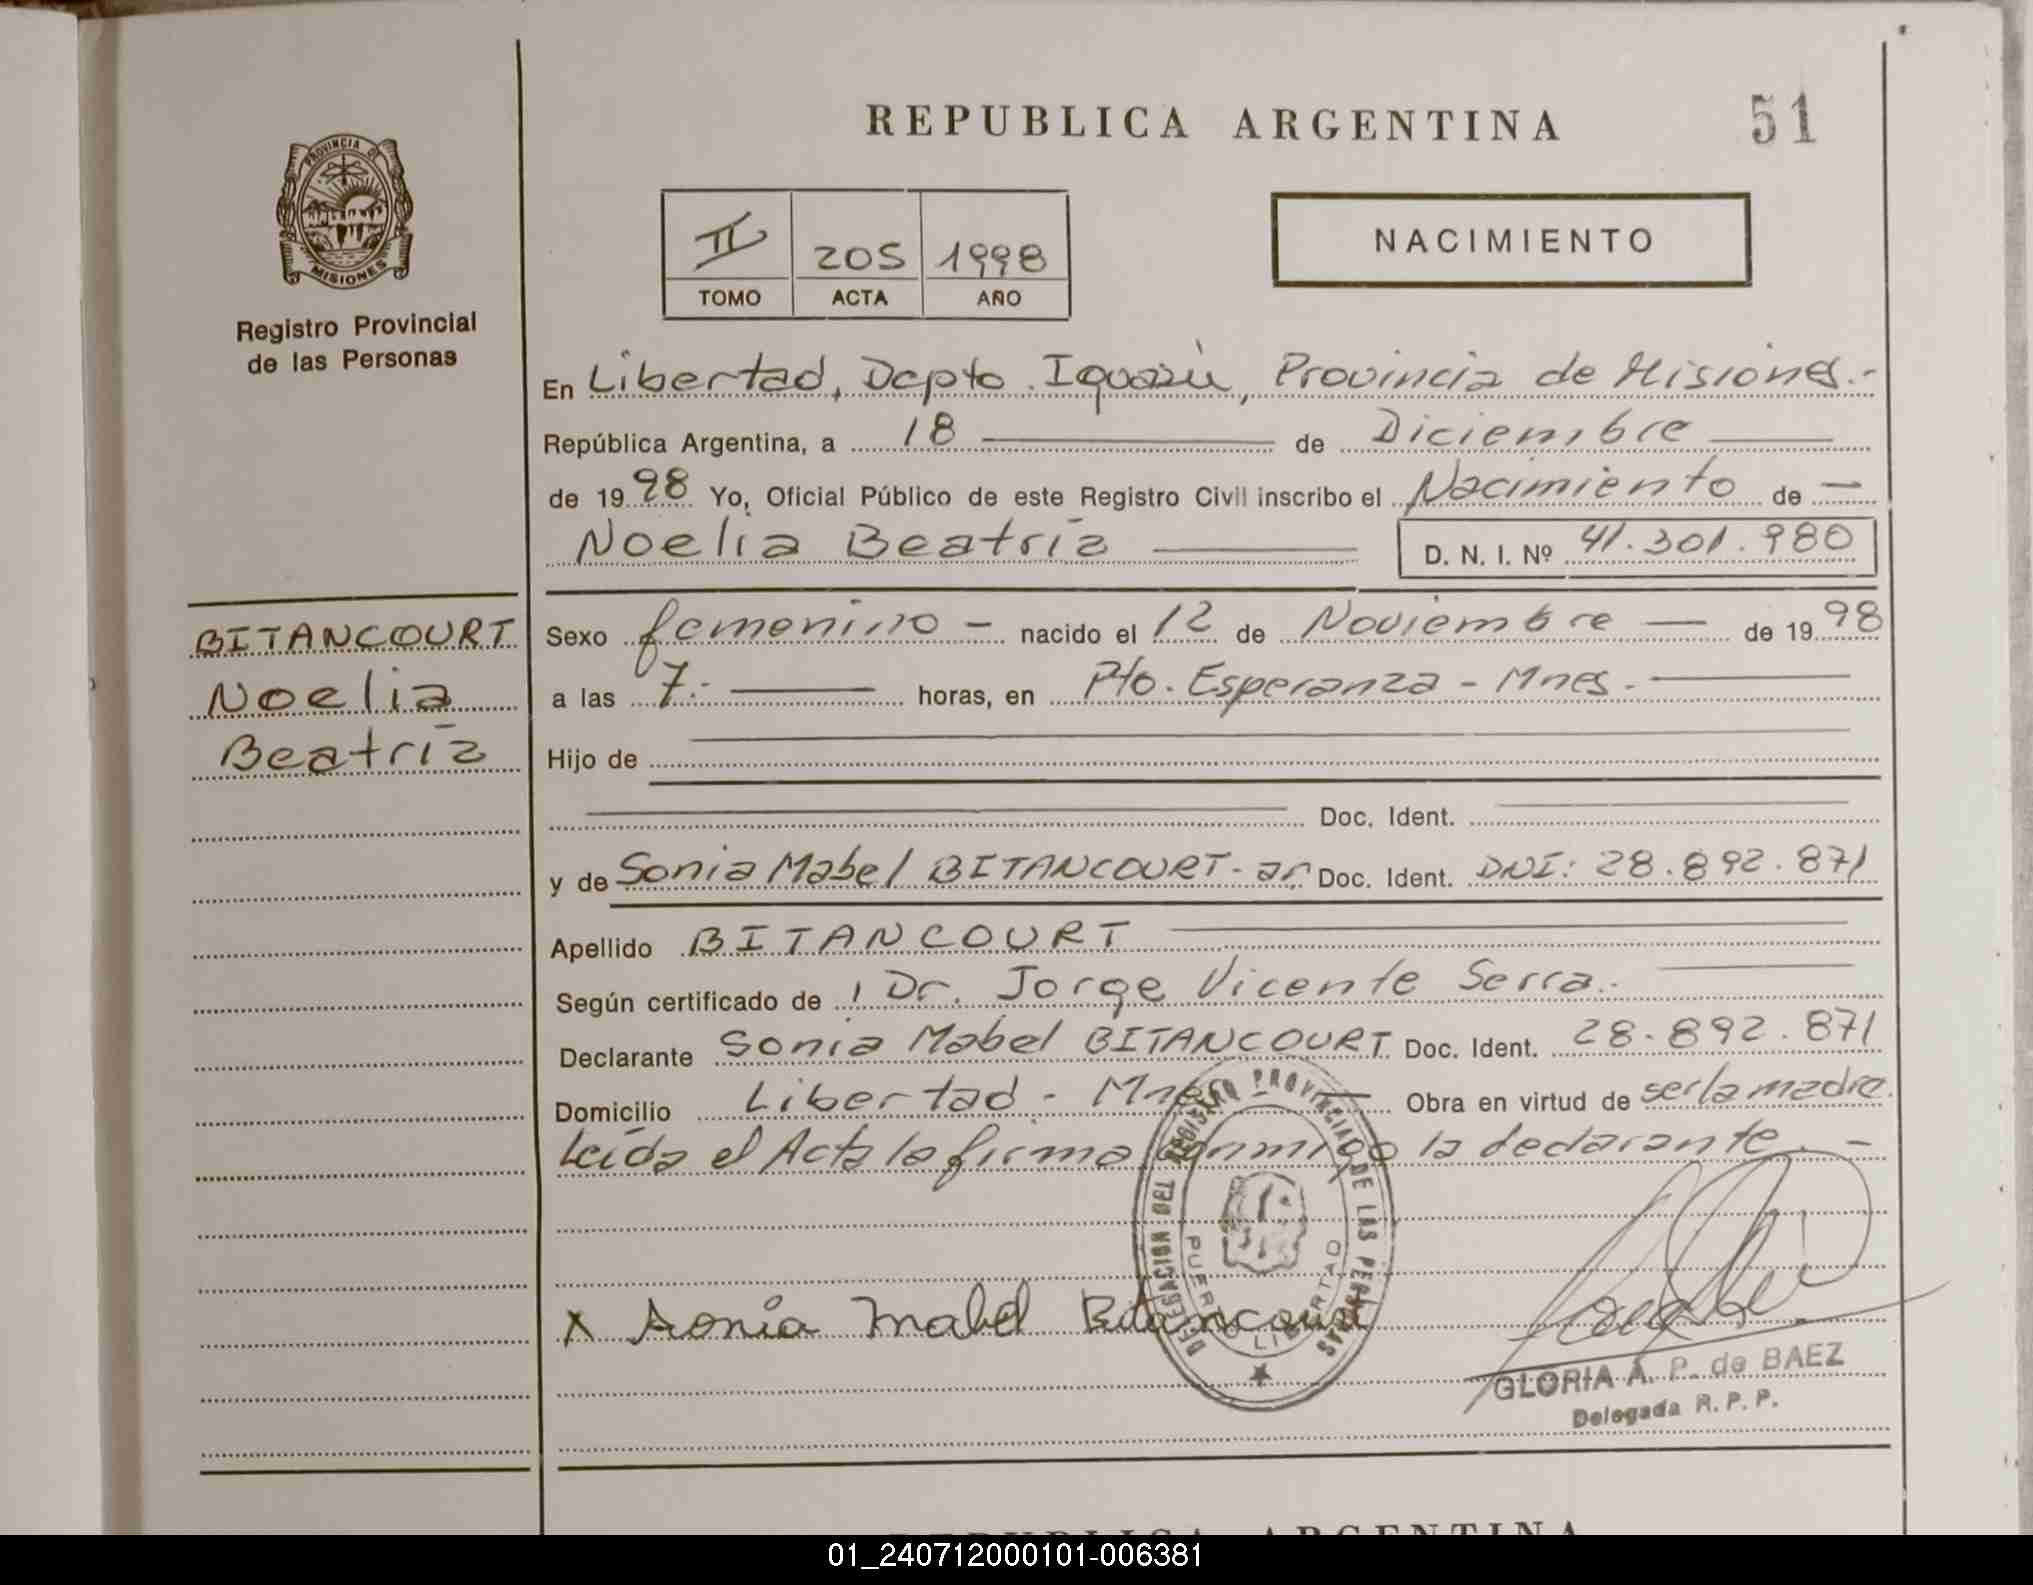 REPUBLICA ARGENTINA
51
PROVINCIA DE
MISIONES
Registro Provincial
de las Personas
II 205 1998
TOMO ACTA AÑO
NACIMIENTO
En Libertad, Dcpto. Iguazú, Provincia de Misiones.-
República Argentina, a 18 de Diciembre
de 1998 Yo, Oficial Público de este Registro Civil inscribo el Nacimiento de -
Noelia Beatríz D. N. I. Nº 41.301.980
BITANCOURT
Noelia
Beatríz
Sexo femenino - nacido el 12 de Noviembre - de 1998
a las 7.- horas, en Pto. Esperanza - Mnes.
Hijo de
Doc. Ident.
y de Sonia Mabel BITANCOURT - ar. Doc. Ident. DNI: 28.892.871
Apellido BITANCOURT
Según certificado de Dr. Jorge Vicente Serra.
Declarante Sonia Mabel BITANCOURT Doc. Ident. 28.892.871
Domicilio Libertad - Mnes Obra en virtud de ser la madre.
Leída el Acta la firma conmigo la declarante. -
DELEGACION DEL REGISTRO PROVINCIAL DE LAS PERSONAS
PUERTO LIBERTAD
x Sonia Mabel Bitancourt
GLORIA A. P. de BAEZ
Delegada R. P. P.
REPUBLICA ARGENTINA
01_240712000101-006381